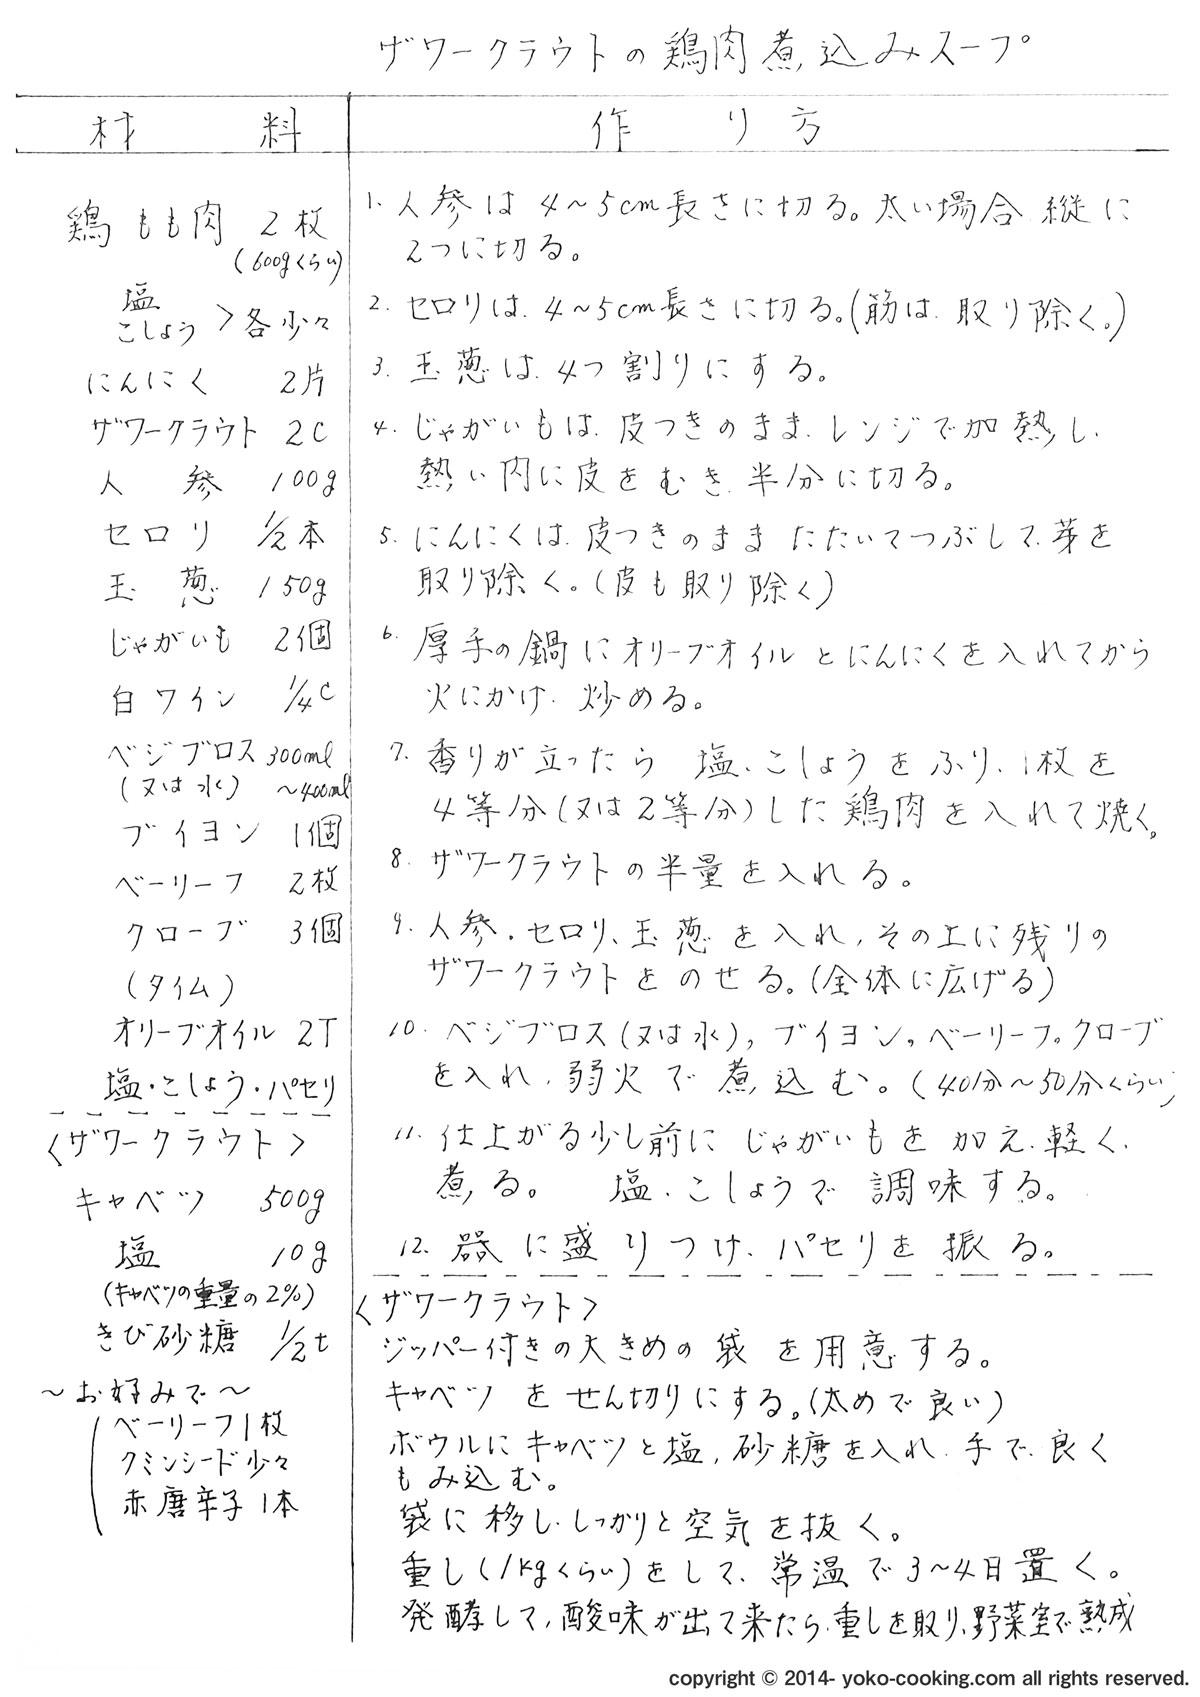 ザワークラウトの鶏肉煮込みスープ
材料
作り方
鶏もも肉 2枚
(600gくらい)
塩
こしょう > 各少々
にんにく 2片
ザワークラウト 2C
人参 100g
セロリ 1/2本
玉葱 150g
じゃがいも 2個
白ワイン 1/4C
ベジブロス 300ml
(又は水) ~400ml
ブイヨン 1個
ベーリーフ 2枚
クローブ 3個
(タイム)
オリーブオイル 2T
塩・こしょう・パセリ
<ザワークラウト>
キャベツ 500g
塩 10g
(キャベツの重量の2%)
きび砂糖 1/2t
~お好みで~
ベーリーフ1枚
クミンシード少々
赤唐辛子1本
1. 人参は4~5cm長さに切る。太い場合縦に
2つに切る。
2. セロリは、4~5cm長さに切る。(筋は、取り除く。)
3. 玉葱は、4つ割りにする。
4. じゃがいもは、皮つきのまま、レンジで加熱し、
熱い内に皮をむき、半分に切る。
5. にんにくは、皮つきのままたたいてつぶして、芽を
取り除く。(皮も取り除く)
6. 厚手の鍋にオリーブオイルとにんにくを入れてから
火にかけ、炒める。
7. 香りが立ったら 塩、こしょうをふり、1枚を
4等分(又は2等分)した鶏肉を入れて焼く。
8. ザワークラウトの半量を入れる。
9. 人参、セロリ、玉葱を入れ、その上に残りの
ザワークラウトをのせる。(全体に広げる)
10. ベジブロス(又は水)、ブイヨン、ベーリーフ。クローブ
を入れ、弱火で煮込む。(40分~50分くらい)
11. 仕上がる少し前にじゃがいもを加え、軽く、
煮る。 塩、こしょうで調味する。
12. 器に盛りつけ、パセリを振る。
<ザワークラウト>
ジッパー付きの大きめの袋を用意する。
キャベツをせん切りにする。(太めで良い)
ボウルにキャベツと塩、砂糖を入れ、手で、良く
もみ込む。
袋に移し、しっかりと空気を抜く。
重し(1kgくらい)をして、常温で3~4日置く。
発酵して、酸味が出て来たら、重しを取り、野菜室で熟成
copyright © 2014- yoko-cooking.com all rights reserved.